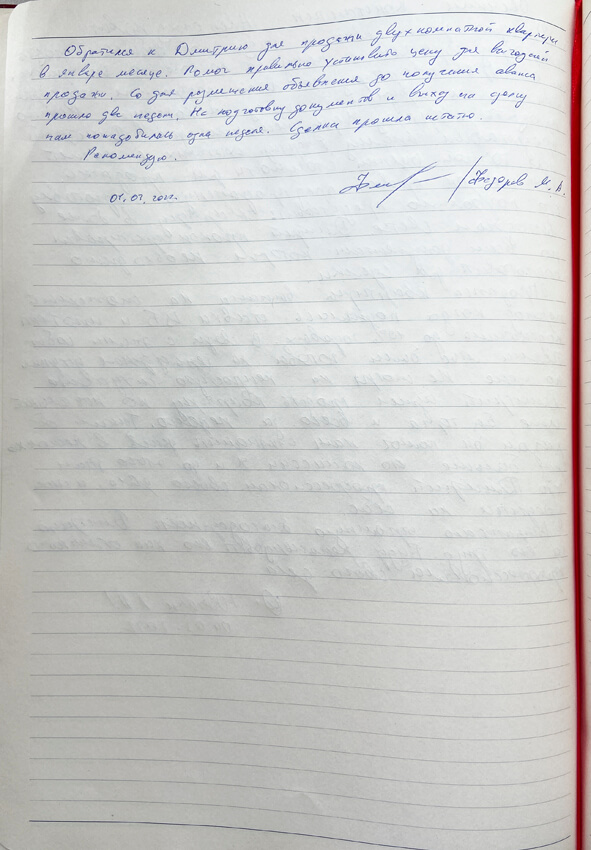 Обратился к Дмитрию для продажи двухкомнатной квартиры
в январе месяце. Помог правильно установить цену для выгодной
продажи. Со дня размещения объявления до получения аванса
прошло две недели. На подготовку документов и выход на сделку
нам понадобилась одна неделя. Сделка прошла штатно.
Рекомендую.
Федоров М. А.